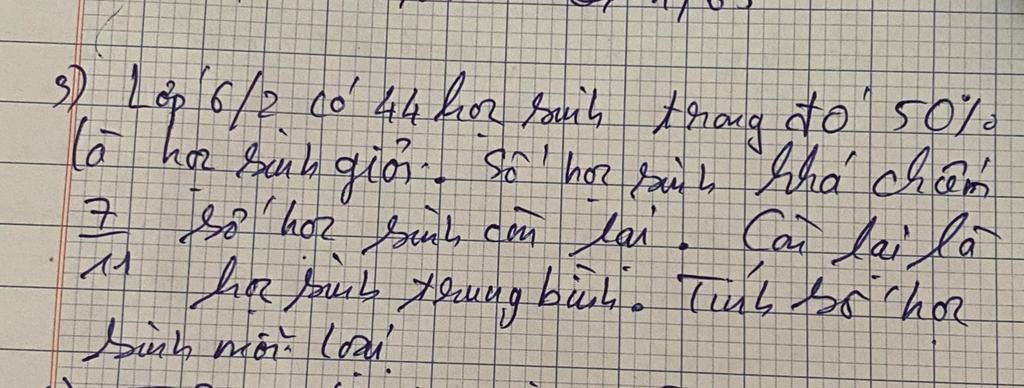 3) Lớp 6/2 có 44 học sinh trong đó 50%
là học sinh giỏi. Số học sinh khá chiếm
7/11 số học sinh còn lại. Còn lại là
học sinh trung bình. Tính số học
sinh mỗi loại